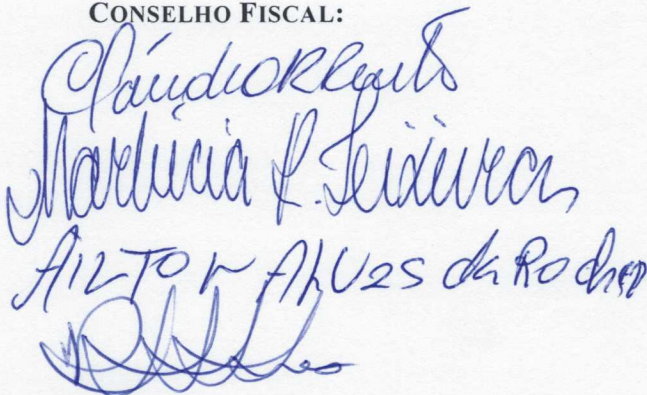 CONSELHO FISCAL:
Cláudio
Marlucia R. Teixeira
AILTON ALVES da Rocha